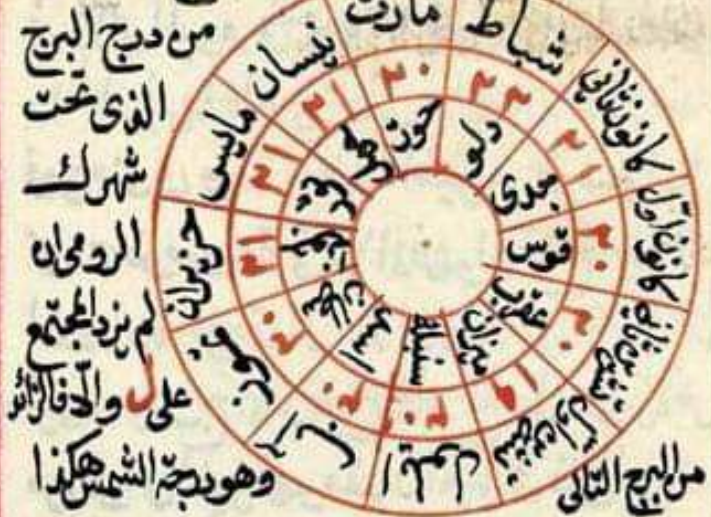 من درج البرج
الذى تحت
شهرك
الرومى ان
لم يزد المجتمع
على ل والا فالزائد
وهو درجة الشمس هكذا
من البرج التالى
مارت
شباط
كانون ثانى
كانون اول
تشرين ثانى
تشرين اول
ايلول
آب
تموز
حزيران
مايس
نيسان
٢٠
٢٢
٢١
٢٠
٢٠
١٩
٢٠
٢٠
٢٠
٢١
٢١
٢١
حوت
دلو
جدى
قوس
عقرب
ميزان
سنبله
اسد
سرطان
جوزا
ثور
حمل